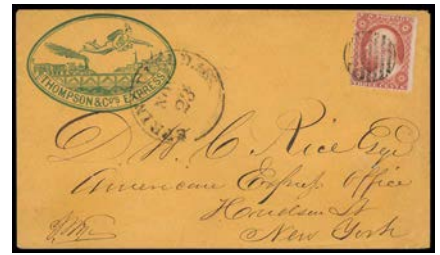 THOMPSON & CO'S EXPRESS
23
THREE CENTS
D. W. C. Rice Esqr
American Express Office
Houdson St
New York